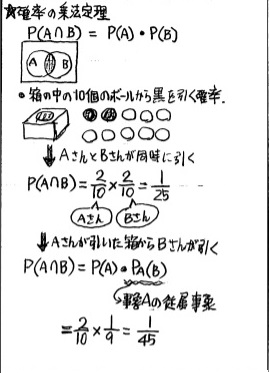 ☆確率の乗法定理
P(A∩B) = P(A)・P(B)
A B
・箱の中の10個のボールから黒を引く確率.
⇓AさんとBさんが同時に引く
P(A∩B) = 2/10 × 2/10 = 1/25
Aさん Bさん
⇓Aさんが引いた箱からBさんが引く
P(A∩B) = P(A)・PA(B)
事象Aの従属事象
= 2/10 × 1/9 = 1/45